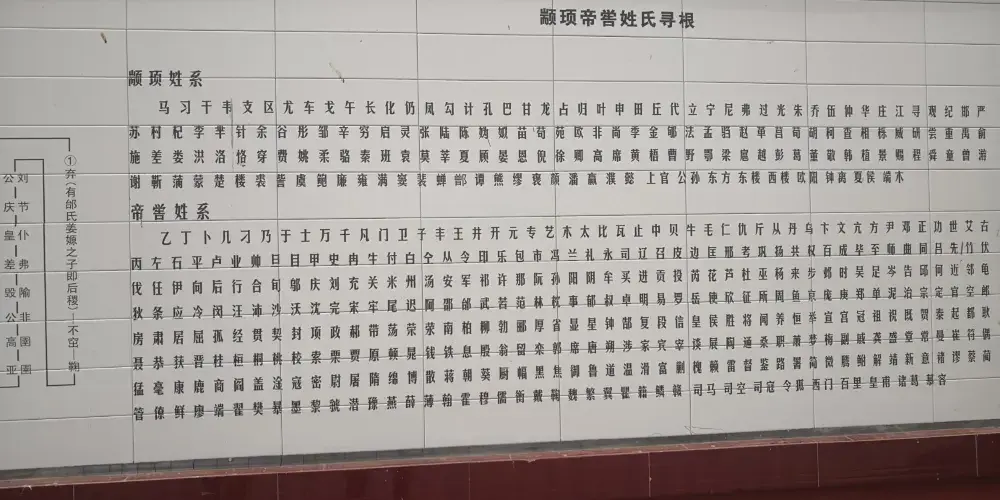 颛顼帝喾姓氏寻根
颛顼姓系
马习干韦支区尤车戈午长化仍凤勾计孔巴甘龙占归叶申田丘代立宁尼弗过光朱乔伍仲华庄江寻观纪邯严
苏村杞李芈针余谷彤邹辛穷启灵张陆陈妫娰苗荀苑欧非尚季金邹法孟驺赵单昌荀胡柯查相栋威研尝重禹俞
施差娄洪洛恪穿费姚柔骆秦班袁莫莘夏顾晏恩倪徐卿高席黄梧曹野鄂梁扈越彭葛董敬韩植景赐程舜童曾游
谢靳蒲蒙楚楼裘訾虞鲍廉雍满窦裴蝉谭熊缪褒颜潘嬴濮懿上官公孙东方东楼西楼欧阳钟离夏侯端木
帝喾姓系
乙丁卜几刁乃于士万千凡门卫子丰王井开元专艺木太比瓦止中贝牛毛仇斤从丹乌卞文亢方尹邓正功世艾古
丙左石平卢业帅旦目甲史冉生付白仝从令印乐包市冯兰礼永司辽召皮边匡邢考巩扬共权百成毕至师曲同吕先竹伏
伐任伊向后行合旬邬庆刘充关米州汤安军祁许那阮孙阴阳牟买进贡投芮花芦杜巫杨来步邺时吴足岑告邱何近邻龟
狄条应冷闵汪沛沙沃沈完宋牢尾迟阿邵郁武若范林枚事郁叔卓明易罗岳使欣征所周鱼京庞庚郑单泥冶宗定官空郎
房肃居屈孤经贯契封项政郝带荡荣荥南柏柳勃郦厚省显星钟郜复段信皇侯胜将闻养恒举宣宫冠祖说既贺泰起都耿
聂恭扶晋桂桓桐桃校索栗贾原顿晁钱铁息殷翁留栾郭席唐朔涉家宾宰谈展陶通桑职萧萝梅副戚盛堂常曼崔符偶
猛毫康鹿商阎盖淦寇密尉屠隋绵博散蒋朝葵厨幅黑焦御鲁道温滑富蒯槐赖雷督鉴路署简微腾解靖新意褚谬綦蔺
管僚鲜廖端翟樊暴墨黎虢潜豫燕薛薄翰霍穆儒衡戴鞠魏繁冀瞿籍鳞赣司马司空司寇令狐西门百里皇甫诸葛慕容
①弃(有邰氏姜嫄之子即后稷)—不窋—鞠
公刘
庆节
皇仆
差弗
毁隃
公非
高圉
亚圉